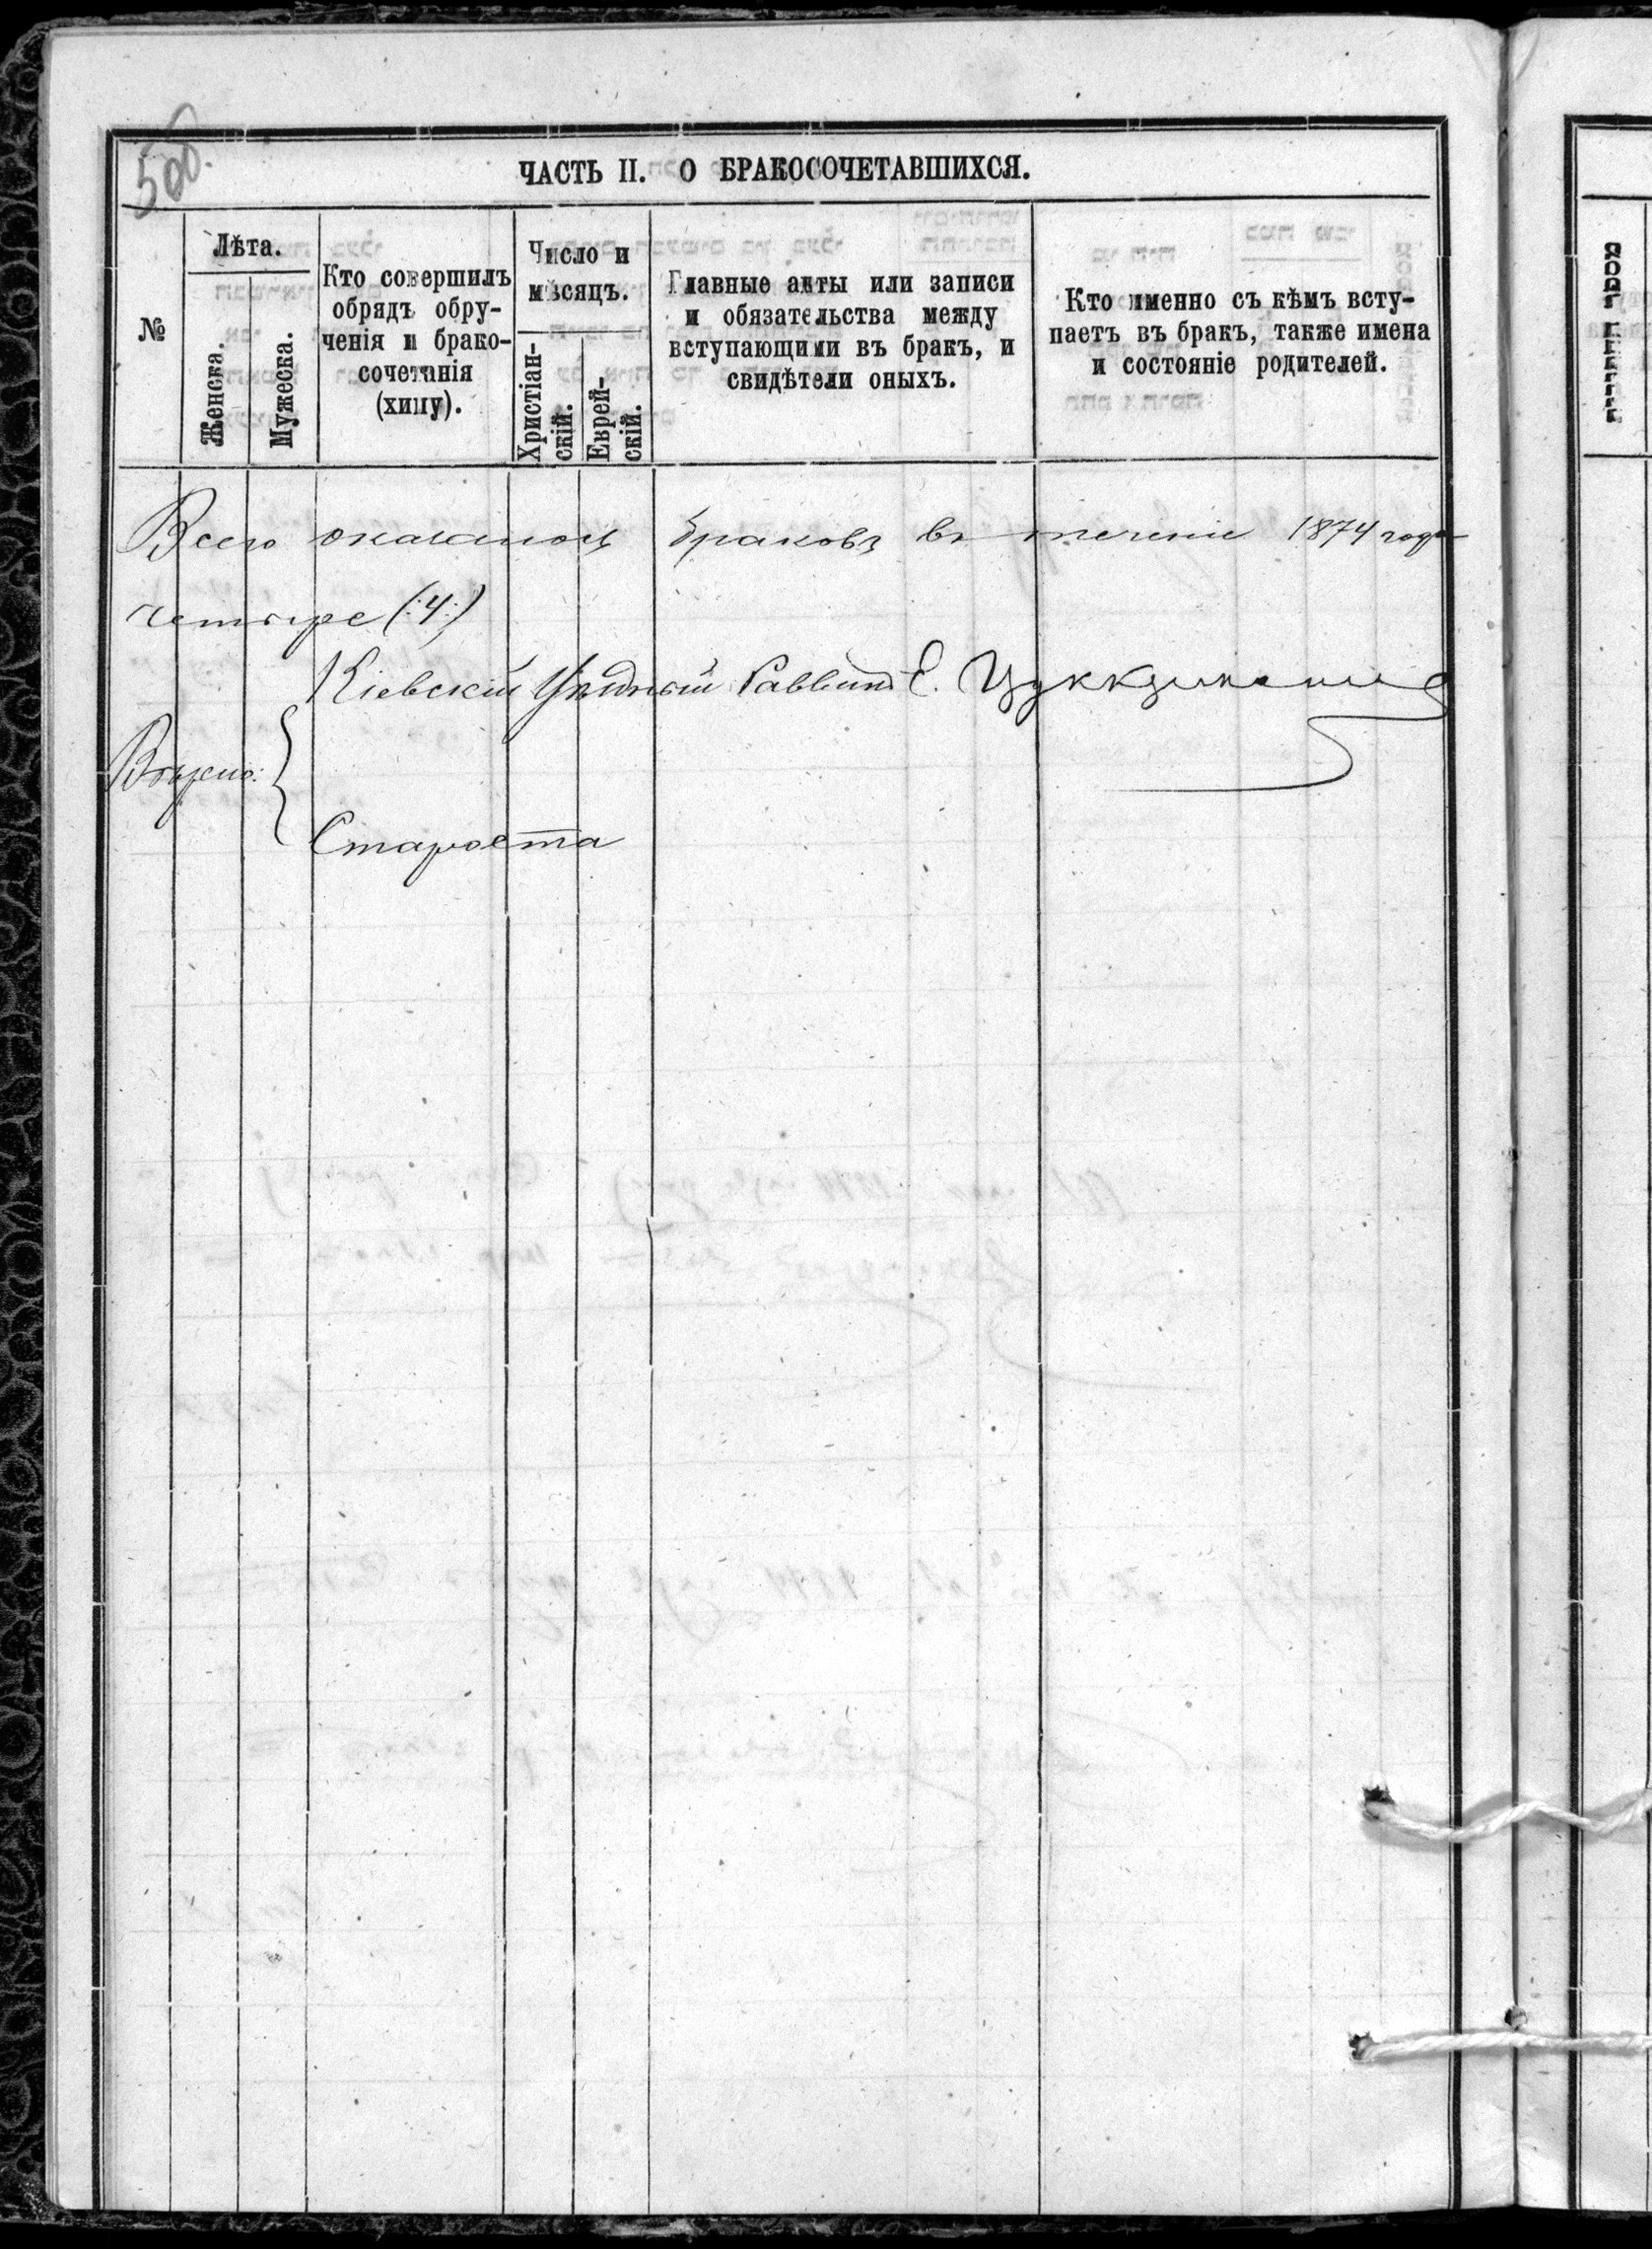 5об.
ЧАСТЬ II. О БРАКОСОЧЕТАВШИХСЯ.
№
Лѣта.
Женска.
Мужеска.
Кто совершилъ
обрядъ обру-
ченія и брако-
сочетанія
(хипу).
Число и
мѣсяцъ.
Христіан-
скій.
Еврей-
скій.
Главные акты или записи
и обязательства между
вступающими въ бракъ, и
свидѣтели оныхъ.
Кто именно съ кѣмъ всту-
паетъ въ бракъ, также имена
и состояніе родителей.
Всего оказалось браковъ въ теченіе 1874 года
четыре (:4:)
Кіевскій Уѣздный Раввинъ Е. Цуккерманъ
Вѣрно:
Староста